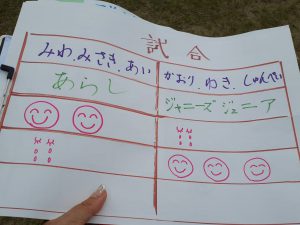 試合
みわ.みさき.あい
かおり.ゆき.しゅんせい
あらし
ジャニーズジュニーア